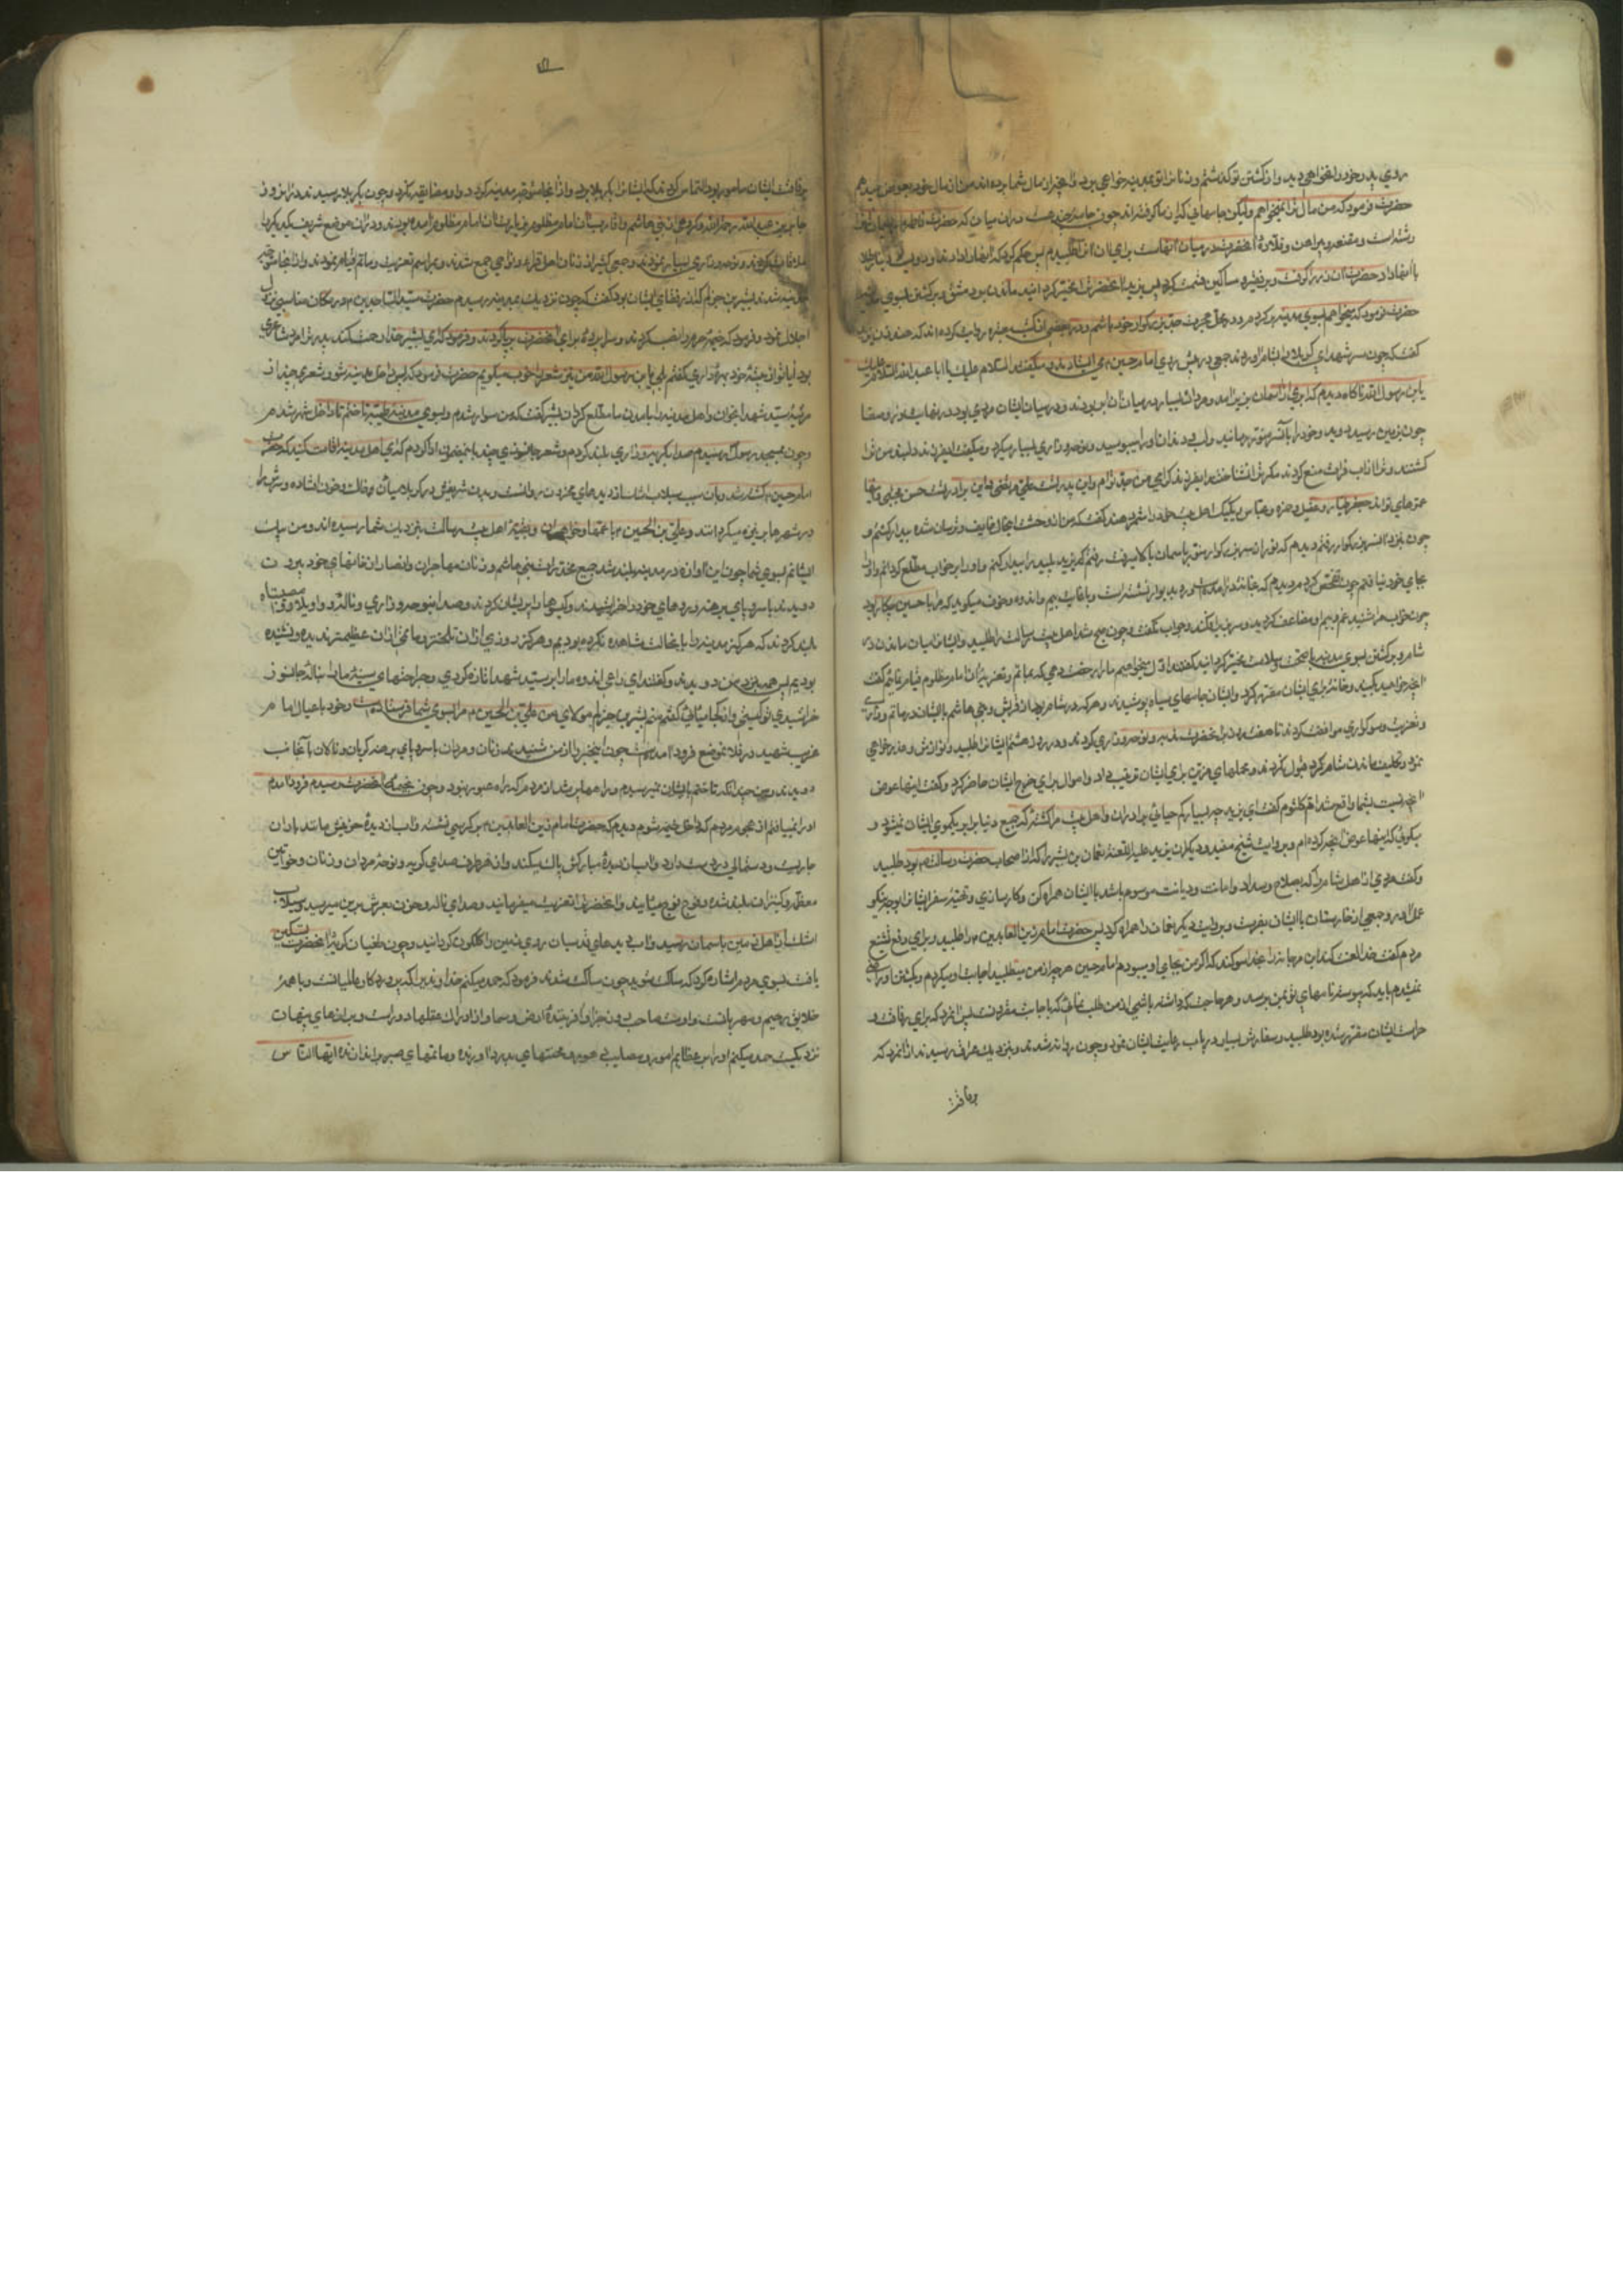 روي پدر خود را نخواهي ديد و از كشتن تو گذشتم و زنان را تو بمدينه خواهي برد و آنچه از مال شما برده اند من از مال خود عوض ميدهم
حضرت فرمود كه من مال ترا نميخواهم وليكن جامهاي كه از ما گرفته اند چون جامه چند هست در آن ميان كه حضرت فاطمه
رشته است و مقنعه و پيراهن و قلاده آنحضرت در ميان آنهاست براي آن آنها را طلبيدم پس حكم كرد كه آنها را دادند و دويست دينار طلا
با آنها داد حضرت آن زر را گرفت و بر فقرا و مساكين قسمت كرد پس يزيد آنحضرت را مخير گردانيد ماندن بدمشق و برگشتن بسوي مدينه
حضرت فرمود كه ميخواهم بسوي مدينه برگردم و در محل هجرت جد بزرگوار خود باشم و در بعضي از كتب معتبره روايت كرده اند كه هند زن يزيد
گفت كه چون سر شهداي كربلا را بشام آوردند شبي در پيش روي امام حسين مي ايستادند و ميگفتند السلام عليك يا ابا عبد الله السلام عليك
يا بن رسول الله ناگاه ديدم كه ابري از آسمان بزير آمد و مردان بسيار در ميان آن ابر بودند و در ميان ايشان مردي بود در نهايت نور و صفا
چون بزمين رسيد دويد و خود را بآن سر منور رسانيد و لب و دندان او را ميبوسيد و نوحه و زاري بسيار ميكرد و ميگفت اي فرزند دلبند من ترا
كشتند و ترا از آب فرات منع كردند مگر ترا نشناختند اي فرزند گرامي من جد توام و اين پدر تست علي مرتضي و اين برادر تست حسن مجتبي و اينها
عموهاي تواند جعفر طيار و عقيل و حمزه و عباس و يك يك اهل بيت خود را شمرد هند گفت كه من از وحشت اين حال خايف و ترسان شده بيدار گشتم و
چون بنزد آن سر بزرگوار رفتم ديدم كه نور از آن سر بزرگوار منور باسمان بالا ميرفت رفتم كه يزيد پليد را بيدار كنم و او را بر خواب مطلع گردانم او را
بجاي خود نيافتم چون تفحص كردم ديدم كه بخانه تار درآمده رو بديوار نشسته است و با غايت بيم و اندوه و خوف ميگويد كه مرا با حسين چكار بود
چون خواب مرا شنيد غم و بيم او مضاعف گرديد و سر بزير افكند و جواب نگفت و چون صبح شد اهل بيت رسالت را طلبيد و ايشان را ميان ماندن در
شام و برگشتن بسوي مدينه با صحت و سلامت مخير گردانيد گفتند اول ميخواهيم ما را رخصت دهي كه بماتم و تعزيه آن امام مظلوم قيام نمائيم گفت
آنچه خواهيد بكنيد و خانه براي ايشان مقرر كرد و ايشان جامهاي سياه پوشيدند و هر كه در شام بود از قريش و بني هاشم با ايشان در ماتم و زاري
و تعزيت و سوگواري موافقت كردند تا هفت روز بر آنحضرت ندبه و نوحه و زاري كردند و در روز هشتم ايشان را طلبيد و نوازش و عذرخواهي
نمود و تكليف ماندن شام كرد قبول نكردند و محملهاي مزين براي ايشان ترتيب داد و اموال براي خرج ايشان حاضر كرد و گفت اينها عوض
آنچه نسبت بشما واقع شد ام كلثوم گفت اي يزيد چه بسيار كم حيائي برادران و اهل بيت مرا كشته كه جميع دنيا برابر يك موي ايشان نميشود و
ميگوئي كه اينها عوض آنچه كرده ام و بروايت شيخ مفيد و ديگران يزيد عليه اللعنه نعمان بن بشير را كه از اصحاب حضرت رسالت بود طلبيد
و گفت مردي از اهل شام را كه بصلاح و سداد و امانت و ديانت موسوم باشد با ايشان همراه كن و كارسازي و تهيه سفر ايشان را بوجه نيكو
عمل آور و جمعي از حارسان با ايشان بفرست و بروايت ديگر نعمان را همراه كرد پس حضرت امام زين العابدين را طلبيد و براي رفع تشنيع
مردم گفت خدا لعنت كند ابن مرجانه را بخدا سوگند كه اگر من بجاي او بودم امام حسين هر چه از من ميطلبيد اجابت او ميكردم و بكشتن او راضي
نميشدم بايد كه پيوسته نامهاي تو بمن برسد و هر حاجت كه داشته باشي از من طلب نمائي كه باجابت مقرونست پس آنمرد كه براي رفاقت و
حراست ايشان مقرر شده بود طلبيد و سفارش بسيار در باب رعايت ايشان نمود و چون روانه شدند و بنزديك عراق رسيدند از آنمرد كه
برفاقت
برفاقت ايشان مامور بود التماس كردند كه ايشان را بكربلا برد و از آنجا متوجه مدينه گردد و او مضايقه نكرد و چون بكربلا رسيدند در آنروز
جابر بن عبد الله رحمه الله و گروهي از بني هاشم و اقارب آن امام مظلوم بزيارت آن امام مظلوم آمده بودند و در آن موضع شريف يكديگر را
ملاقات كردند و نوحه و زاري بسيار نمودند و جمعي كثير از زنان اهل قراء و نواحي جمع شدند و بمراسم تعزيت و ماتم قيام نمودند و از آنجا متوجه
مدينه شدند بشير بن جزلم كه از رفقاي ايشان بود گفت كه چون نزديك بمدينه رسيدم حضرت سيد الساجدين در مكان مناسبي نزول
اجلال نمود و فرمود كه خيمه حرم را نصب كردند و سراپرده براي آنحضرت برپا كردند و فرمود كه اي بشير خدا رحمت كند پدر ترا مرد شاعري
بود آيا تو از پيشه خود بهره داري گفتم بلي يا بن رسول الله من نيز شعر را خوب ميگويم حضرت فرمود كه پس داخل مدينه شو و شعري چند از
مرثيه سيد شهدا بخوان و اهل مدينه را بآمدن ما مطلع گردان بشير گفت كه من سوار شدم و بسوي مدينه طيبه تاختم تا داخل شهر شدم
و چون بمسجد رسول رسيدم صدا بگريه و زاري بلند كردم و شعر جانسوزي چند باين مضمون ادا كردم كه اي اهل مدينه اقامت مكنيد كه حضرت
امام حسين كشته شد و بآن سبب سيلاب اشك از ديدهاي من روانست و بدن شريفش در كربلا ميان خاك و خون افتاده و سرش را
در شهرها بر نيزه ميگردانند و علي بن الحسين با عمها و خواهران و بقيه اهل بيت رسالت بنزديك شما رسيده اند و من پيك
ايشانم بسوي شما چون اين آوازه در مدينه بلند شد جميع مخدرات بني هاشم و زنان مهاجران و انصار از خانهاي خود بيرون
دويدند با سر و پاي برهنه و روهاي خود را خراشيدند و گيسوها را پريشان كردند و صدا بنوحه و زاري و ناله و واويلا و وامصيبتاه
بلند كردند كه هرگز مدينه را با ينحالت مشاهده نكرده بوديم و هرگز روزي از آن تلختر و ماتمي از آن عظيمتر نديده و نشنيده
بوديم پس همه بنزد من دويدند و گفتند اي داعي اندوه ما را بر سيد شهدا تازه كردي و جراحتهاي سينه ما را بناله جانسوز
خراشيدي تو كيستي و از كجا ميآئي گفتم منم بشير بن جزلم مولاي من علي بن الحسين مرا بسوي شما فرستاده است و خود با عيال امام
غريب شهيد در فلان موضع فرود آمده است چون اينخبر را از من شنيدند زنان و مردان با سر و پاي برهنه گريان و نالان بآنجانب
دويدند و من چندانكه تاختم بايشان نميرسيدم و راهها پر شد از مردم كه راه عبور نبود و چون بخيمه آنحضرت رسيدم فرود آمدم
و راه نمييافتم از هجوم مردم كه داخل خيمه شوم ديدم كه حضرت امام زين العابدين بر كرسي نشسته و آب از ديده حق بينش مانند باران
جاريست و دستمالي در دست دارد و آب از ديده مباركش پاك ميكند و از هر طرف صداي گريه و نوحه مردان و زنان و خواتين
معظمه و كنيزان بلند شده و فوج فوج ميآيند و آنحضرت را تعزيت ميفرمايند و صداي ناله و حزن بعرش برين ميرسيد و سيلاب
اشك از اهل زمين باسمان رسيد و آب ديدهاي قدسيان روي زمين را گلگون گردانيد و چون طغيان گريه آنحضرت تسكين
يافت بسوي مردم اشاره كرد كه ساكت شويد چون ساكت شدند فرمود كه حمد ميكنم خداونديرا كه پروردگار عالميانست و با همه
خلايق رحيم و مهربانست و اوست صاحب روز جزا و آفريننده ارض و سما و از ادراك عقلها دور است و برازهاي پنهان
نزديكست حمد ميكنم او را بر عظايم امور و مصايب دهور و محنتهاي بدرد آورنده و ماتمهاي صبر براندازنده ايها الناس